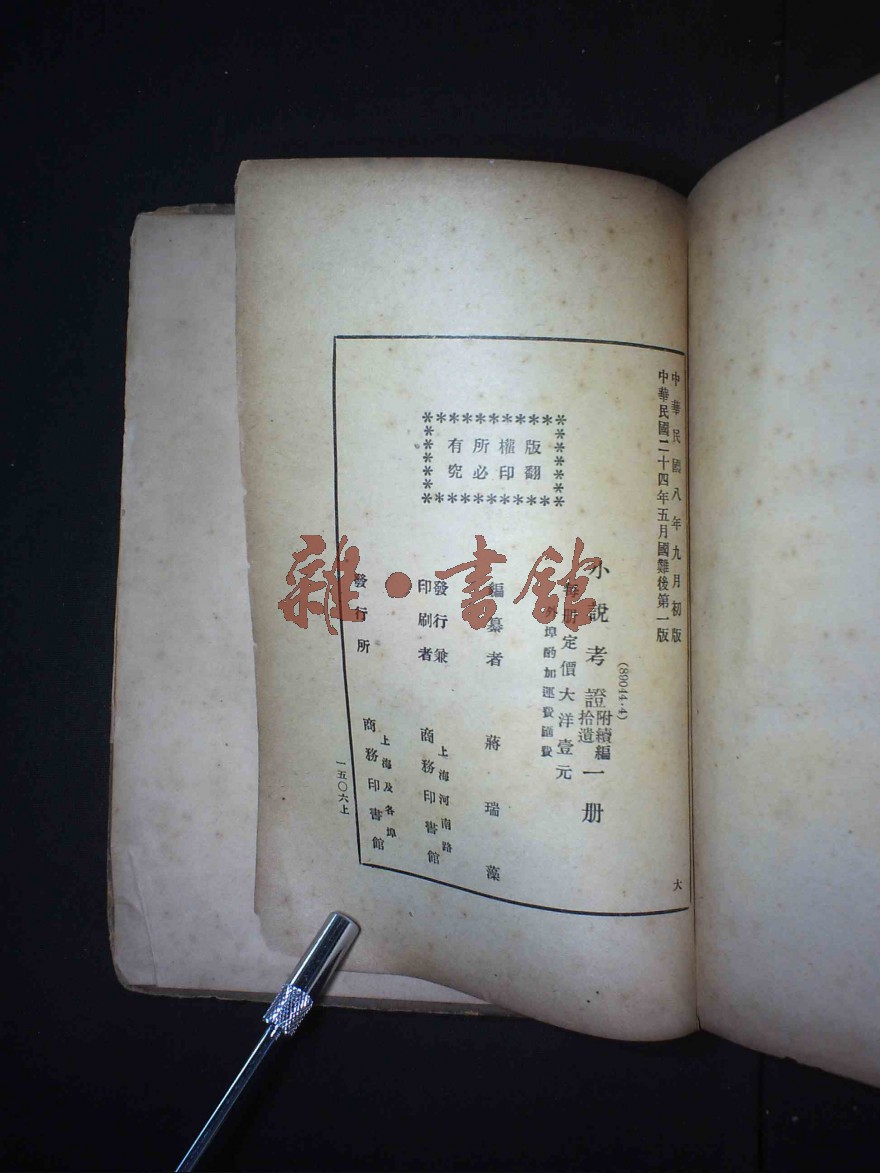 中華民國八年九月初版
中華民國二十四年五月國難後第一版
大
(89044·4)
小說考證附續編拾遺一册
每册定價大洋壹元
外埠酌加運費匯費
版權所有
翻印必究
編纂者 蔣瑞藻
發行兼印刷者
上海河南路
商務印書館
發行所
上海及各埠
商務印書館
一五〇六上
雜·書館